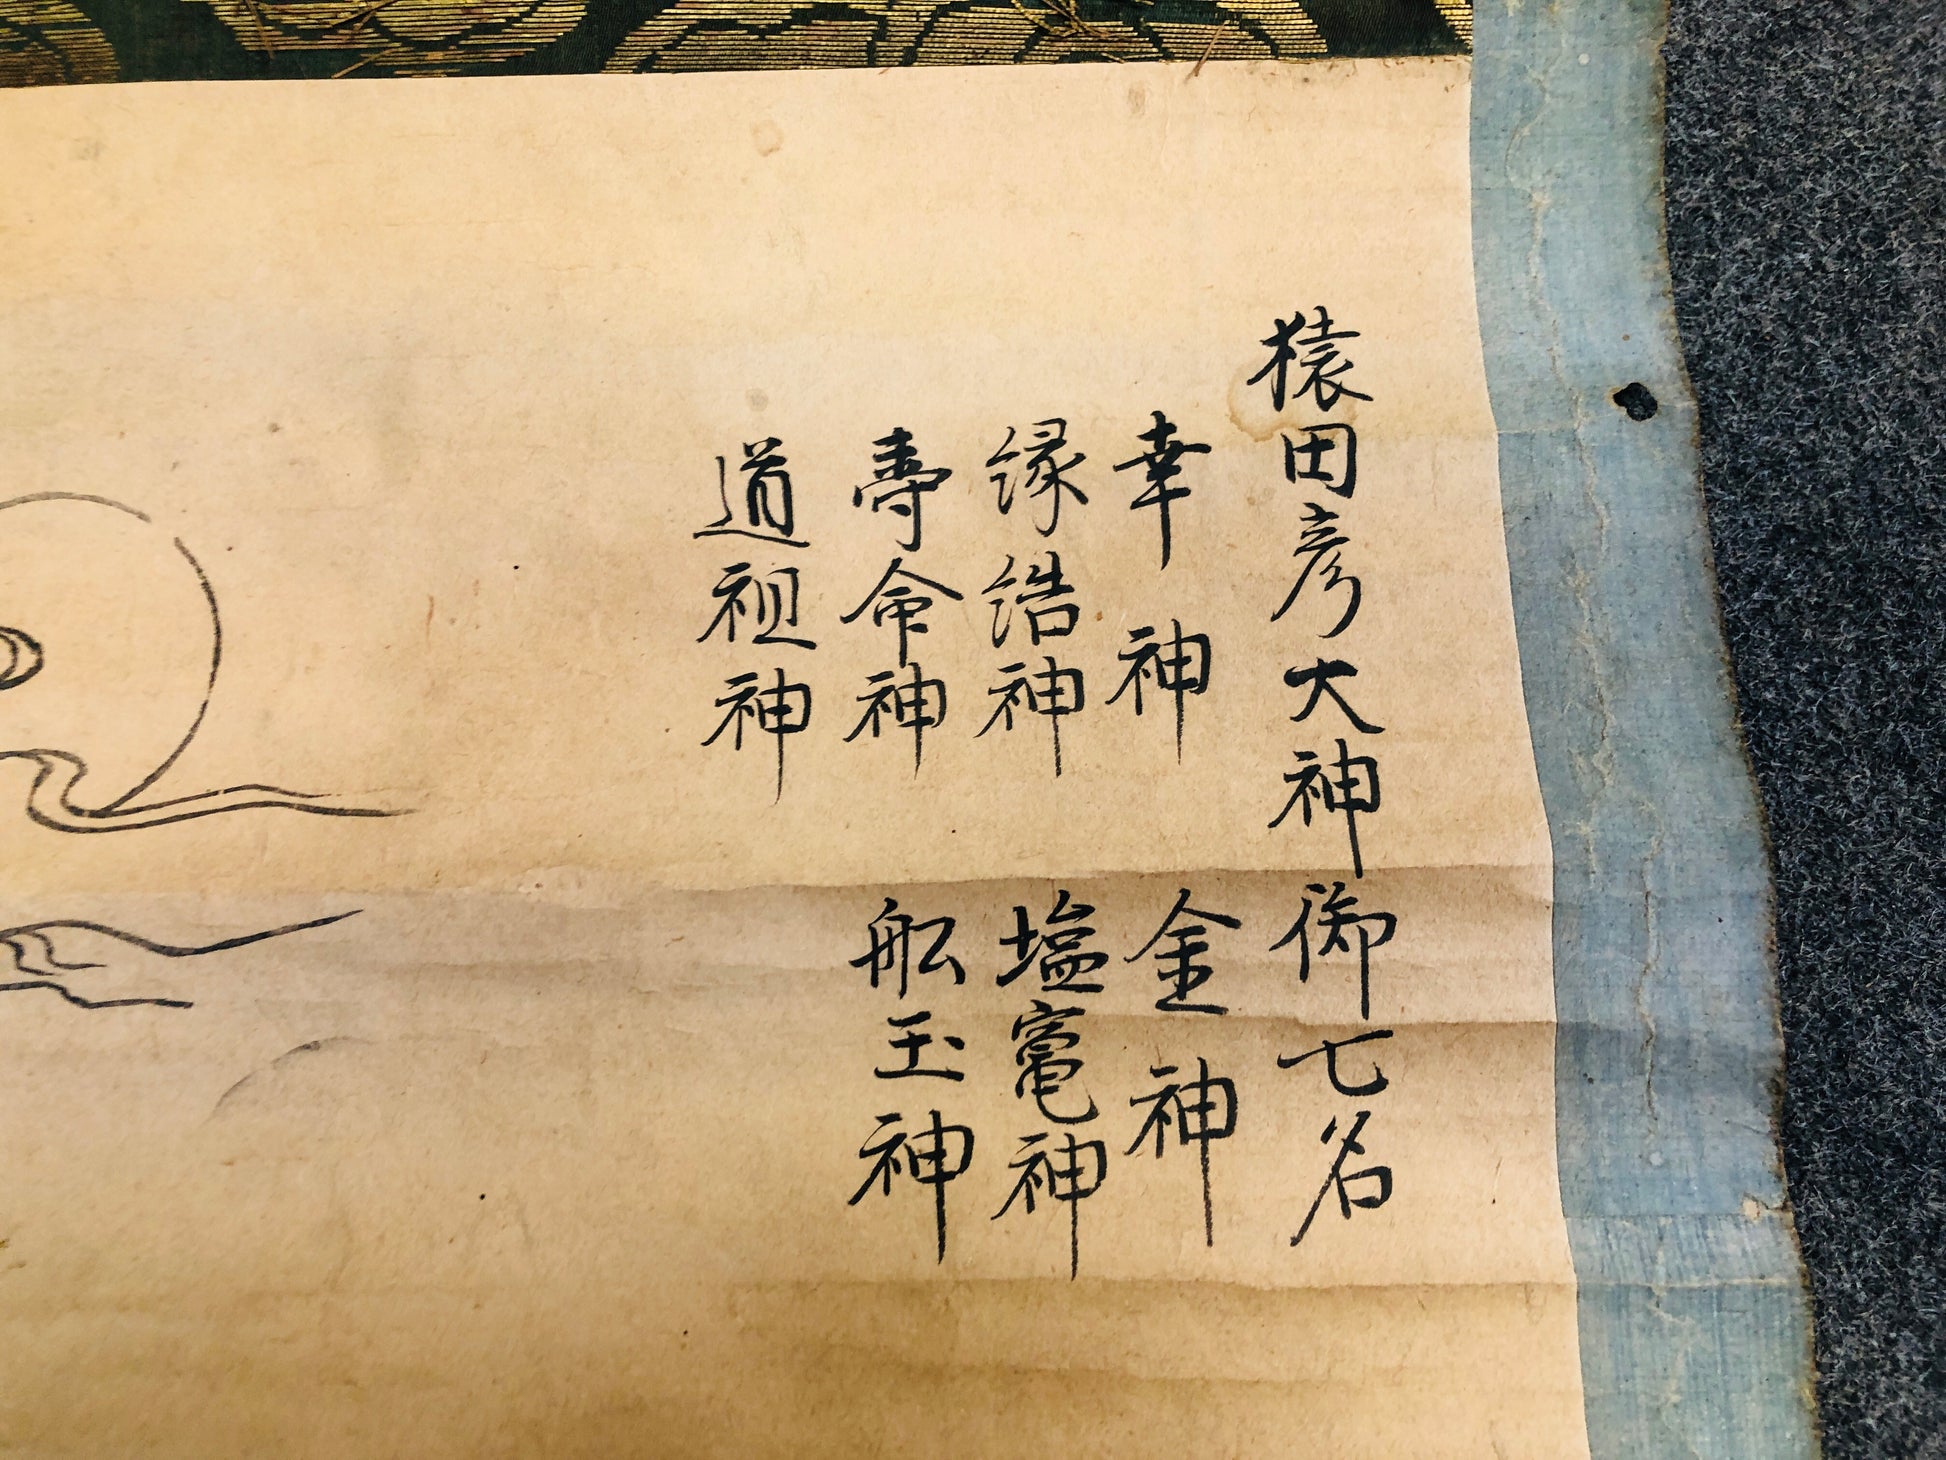 猿田彦大神御七名
幸神
金神
縁结神
塩竃神
寿命神
舩玉神
道祖神